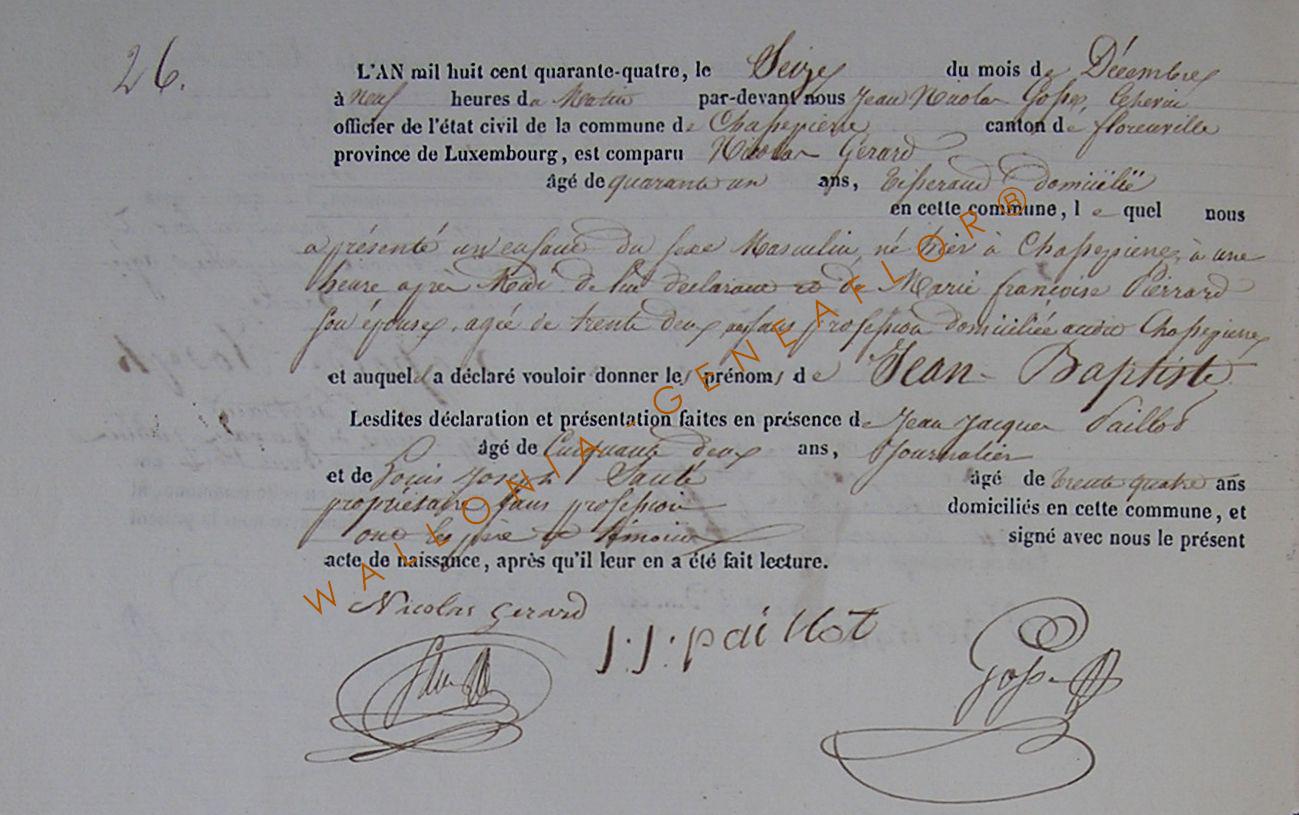 26.
L'AN mil huit cent quarante-quatre, le Seize du mois de Décembre
à neuf heures du Matin par-devant nous Jean Nicolas Gosse, Echevin
officier de l'état civil de la commune de Chassepierre canton de florenville
province de Luxembourg, est comparu Nicolas Gérard
âgé de quarante un ans, Tisserand domicilié
en cette commune, le quel nous
a présenté un enfant du sexe Masculin, né hier à Chassepierre, à une
heure après Midi de lui déclarant et de Marie françoise Pierrard
son épouse, agée de trente deux ans sans profession domiciliée audit Chassepierre
et auquel il a déclaré vouloir donner les prénoms de Jean Baptiste
Lesdites déclaration et présentation faites en présence de Jean Jacques Paillot
âgé de Cinquante deux ans, Journalier
et de Louis Joseph âgé de trente quatre ans
propriétaire sans profession domiciliés en cette commune, et
ont les père et témoins signé avec nous le présent
acte de naissance, après qu'il leur en a été fait lecture.
Nicolas Gerard
J:J:paillot
Gosse
WALLONIA - GENEAFLOR®